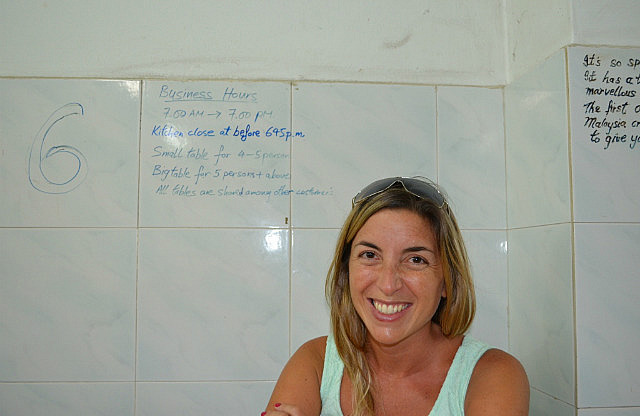 6
Business Hours
7.00 AM → 7.00 PM
Kitchen close at before 645 p.m
Small table for 4-5 person
Big table for 5 persons + above
All tables are shared among other customers
It's so sp
It has a t
marvellous
The first
Malaysia cr
to give yo